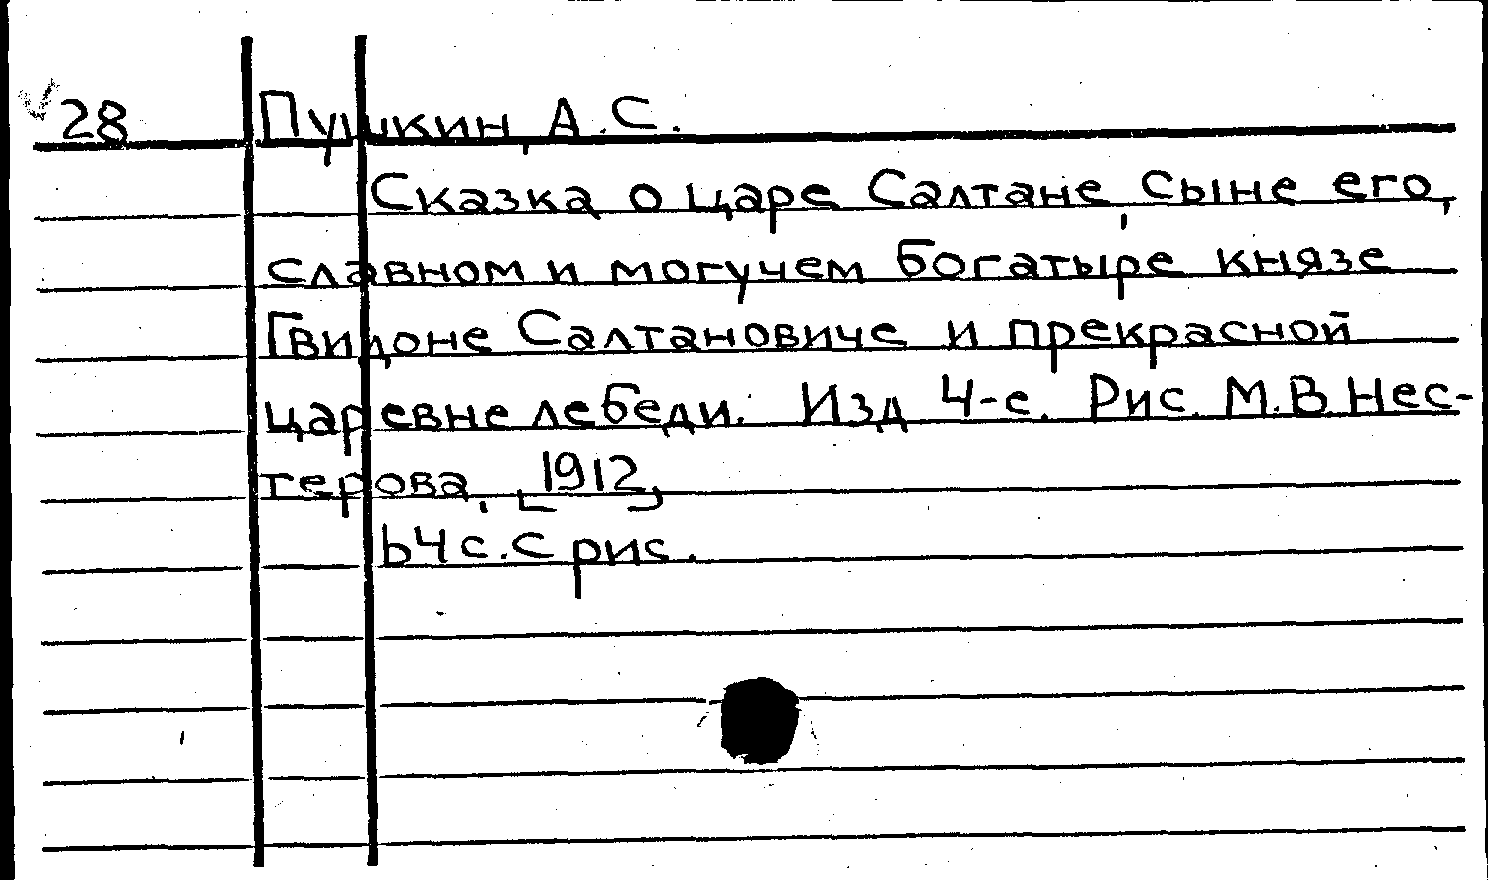 28 Пушкин, А.С.
Сказка о царе Салтане, сыне его,
славном и могучем богатыре князе
Гвидоне Салтановиче и прекрасной
царевне лебеди. Изд 4-е. Рис. М.В. Нес-
терова. [1912]
64 с. с рис.